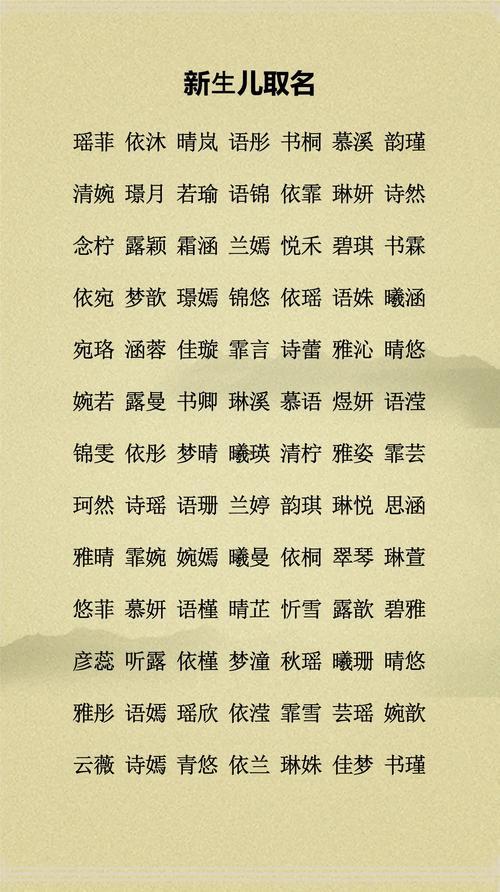 新生儿取名
瑶菲 依沐 晴岚 语彤 书桐 慕溪 韵瑾
清婉 璟月 若瑜 语锦 依霏 琳妍 诗然
念柠 露颖 霜涵 兰嫣 悦禾 碧琪 书霖
依宛 梦歆 璟嫣 锦悠 依瑶 语姝 曦涵
宛珞 涵蓉 佳璇 霏言 诗蕾 雅沁 晴悠
婉若 露曼 书卿 琳溪 慕语 煜妍 语滢
锦雯 依彤 梦晴 曦瑛 清柠 雅姿 霏芸
珂然 诗瑶 语珊 兰婷 韵琪 琳悦 思涵
雅晴 霏婉 婉嫣 曦曼 依桐 翠琴 琳萱
悠菲 慕妍 语槿 晴芷 忻雪 露歆 碧雅
彦蕊 听露 依槿 梦潼 秋瑶 曦珊 晴悠
雅彤 语嫣 瑶欣 依滢 霏雪 芸瑶 婉歆
云薇 诗嫣 青悠 依兰 琳姝 佳梦 书瑾